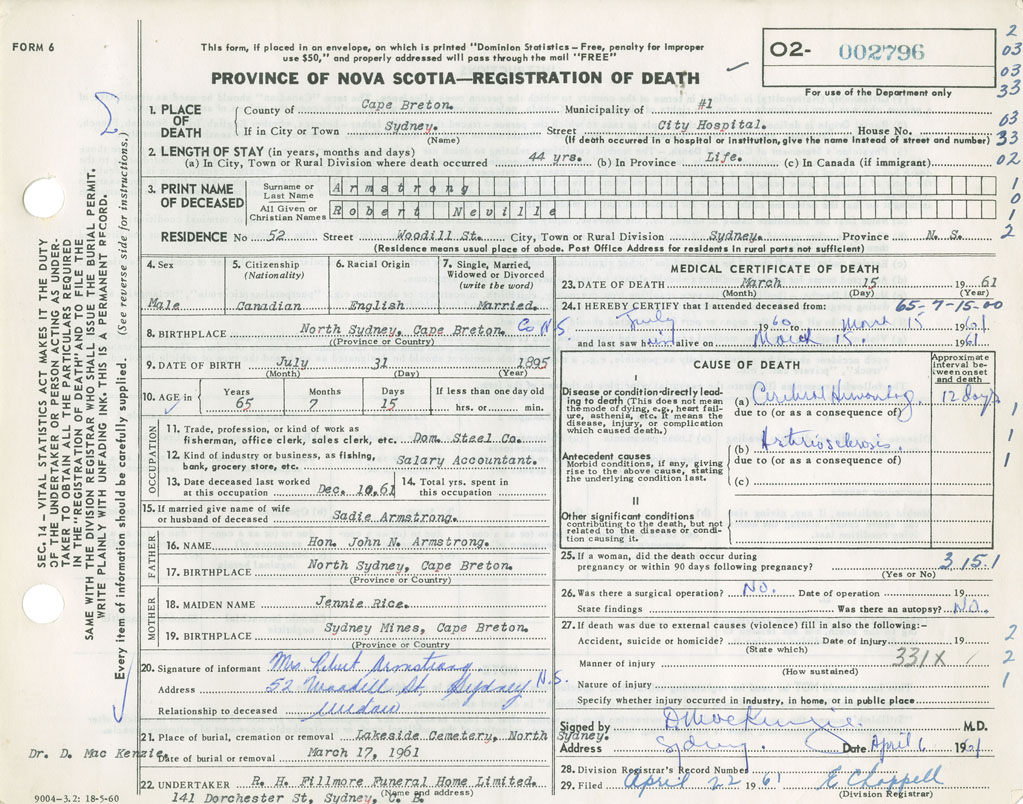 FORM 6
This form, if placed in an envelope, on which is printed "Dominion Statistics – Free, penalty for improper
use $50," and properly addressed will pass through the mail "FREE"
PROVINCE OF NOVA SCOTIA—REGISTRATION OF DEATH
O2- 002796
For use of the Department only
2
03
03
33
03
33
02
1
0
1
2
SEC. 14 – VITAL STATISTICS ACT MAKES IT THE DUTY
OF THE UNDERTAKER OR PERSON ACTING AS UNDER-
TAKER TO OBTAIN ALL THE PARTICULARS REQUIRED
IN THE "REGISTRATION OF DEATH" AND TO FILE THE
SAME WITH THE DIVISION REGISTRAR WHO SHALL ISSUE THE BURIAL PERMIT.
WRITE PLAINLY WITH UNFADING INK. THIS IS A PERMANENT RECORD.
Every item of information should be carefully supplied. (See reverse side for instructions.)
1. PLACE OF DEATH
County of Cape Breton. Municipality of #1
If in City or Town Sydney. Street City Hospital. House No.
(Name) (If death occurred in a hospital or institution, give the name instead of street and number)
2. LENGTH OF STAY (in years, months and days)
(a) In City, Town or Rural Division where death occurred 44 yrs. (b) In Province Life. (c) In Canada (if immigrant)
3. PRINT NAME OF DECEASED
Surname or Last Name Armstrong
All Given or Christian Names Robert Neville
RESIDENCE No 52 Street Woodill St. City, Town or Rural Division Sydney. Province N. S.
(Residence means usual place of abode. Post Office Address for residents in rural parts not sufficient)
4. Sex
Male
5. Citizenship (Nationality)
Canadian
6. Racial Origin
English
7. Single, Married, Widowed or Divorced (write the word)
Married.
8. BIRTHPLACE North Sydney, Cape Breton. Co N.S.
((Province or Country)
9. DATE OF BIRTH July 31 1895
(Month) (Day) (Year)
10. AGE in
Years Months Days If less than one day old
65 7 15 hrs. or min.
OCCUPATION
11. Trade, profession, or kind of work as
fisherman, office clerk, sales clerk, etc. Dom. Steel Co.
12. Kind of industry or business, as fishing,
bank, grocery store, etc. Salary Accountant.
13. Date deceased last worked at this occupation Dec. 10,61
14. Total yrs. spent in this occupation
15. If married give name of wife
or husband of deceased Sadie Armstrong.
FATHER
16. NAME Hon. John N. Armstrong.
17. BIRTHPLACE North Sydney, Cape Breton.
(Province or Country)
MOTHER
18. MAIDEN NAME Jennie Rice.
19. BIRTHPLACE Sydney Mines, Cape Breton.
(Province or Country)
20. Signature of informant Mrs Robert Armstrong
Address 52 Woodill St. Sydney N.S.
Relationship to deceased widow
21. Place of burial, cremation or removal Lakeside Cemetery, North Sydney.
Dr. D. Mac Kenzie.
Date of burial or removal March 17, 1961
22. UNDERTAKER R. H. Fillmore Funeral Home Limited.
(Name and address)
141 Dorchester St, Sydney, C. B.
9004-3.2: 18-5-60
MEDICAL CERTIFICATE OF DEATH
23. DATE OF DEATH March 15 1961
(Month) (Day) (Year)
24. I HEREBY CERTIFY that I attended deceased from: 65-7-15-00
July 1960 to March 15 1961
and last saw him alive on March 15. 1961
CAUSE OF DEATH
Approximate interval between onset and death
I
Disease or condition directly leading to death (This does not mean the mode of dying, e.g., heart failure, asthenia, etc. It means the disease, injury, or complication which caused death.)
(a) Cerebral Hemorrhage 12 days
due to (or as a consequence of)
1
Antecedent causes
Morbid conditions, if any, giving rise to the above cause, stating the underlying condition last.
(b) Arteriosclerosis
due to (or as a consequence of)
(c)
1
1
II
Other significant conditions
contributing to the death, but not related to the disease or condition causing it.
25. If a woman, did the death occur during
pregnancy or within 90 days following pregnancy? 3.15.1
(Yes or No)
26. Was there a surgical operation? No. Date of operation 19
State findings Was there an autopsy? No.
27. If death was due to external causes (violence) fill in also the following:–
Accident, suicide or homicide? Date of injury 19
(State which)
2
Manner of injury 331X
(How sustained)
2
Nature of injury
1
Specify whether injury occurred in industry, in home, or in public place
Signed by D MacKenzie. M.D.
Address Sydney. Date April 6 1961
28. Division Registrar's Record Number
29. Filed April 22 1961 E Chappell
(Division Registrar)